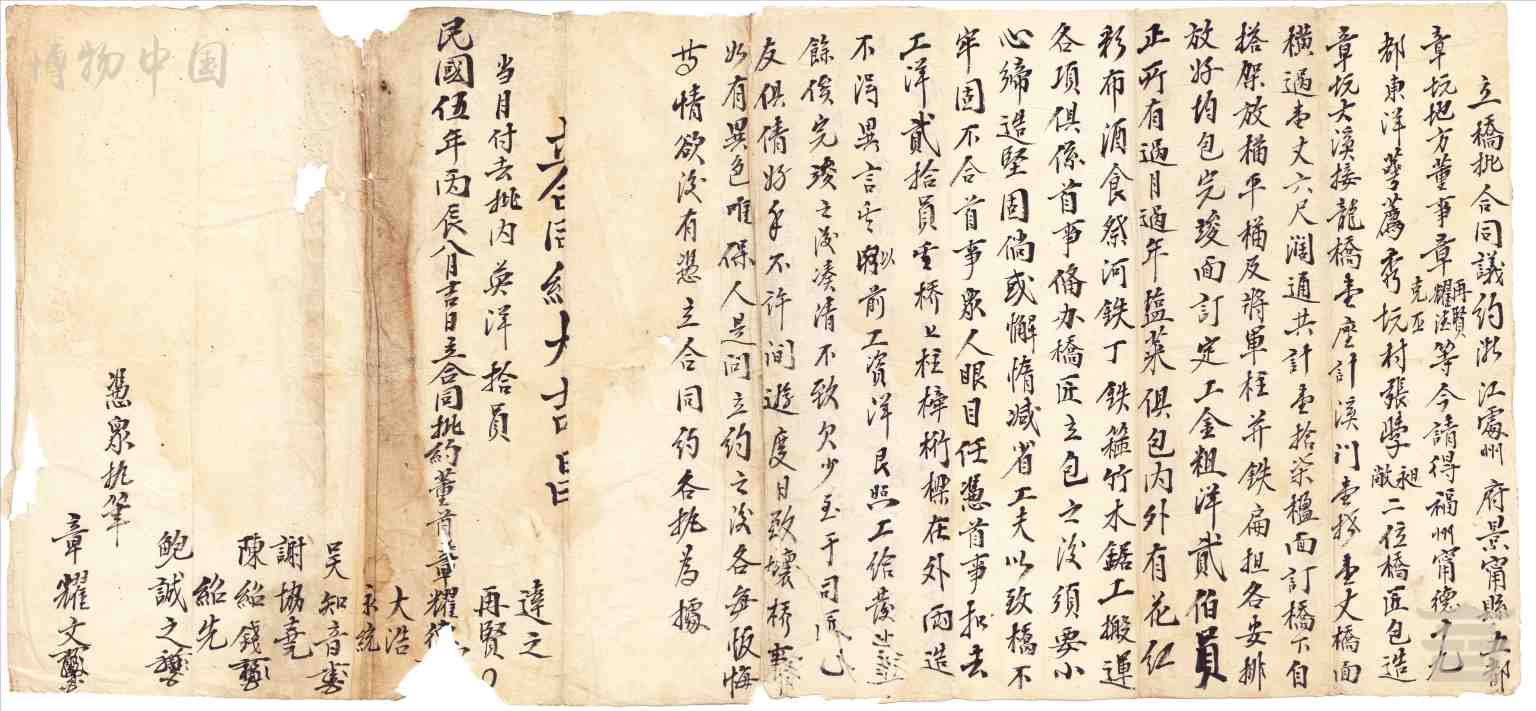 立橋批合同議約浙江處州府景甯縣五都
章坑地方董事章耀淦再賢克臣等今請得福州甯德
都東洋薦秀坑村張學昶敞二位橋匠包造
章坑大溪接龍橋壹座計溪门壹拾壹丈橋面
橫過壹丈六尺濶通共計壹拾柒楹面訂橋下自
搭架放樠平樠及將軍柱并鉄扁担各安排
放好均包完竣面訂定工金粗洋貳伯員
正所有過月過年藍菜俱包内外有花红
彩布酒食祭河鉄丁鉄箍竹木鋸工搬運
各項俱係首事俻办橋匠立包之後須要小
心締造堅固倘或懈惰减省工夫以致橋不
牢固不合首事眾人眼目任憑首事扣去
工洋貳拾員壹桥上柱樟桁樑在外面造
不淂異言前工資洋艮照工给發
餘俟完竣之後凑清不致欠少至于司
友俱倩好手不許间遊度日致壞桥事
如有異色唯保人是问立約之後各毎皈悔
等情欲後有憑立合同約各执為據
立合同約大吉昌
當月付去批内英洋拾員
民國伍年丙辰八月吉日立合同批約董首章耀
達之
再賢
大浩
永統
吴知音
謝協堯
陳紹錢
紹先
鮑誠之
憑眾执筆
章耀文
博物中国